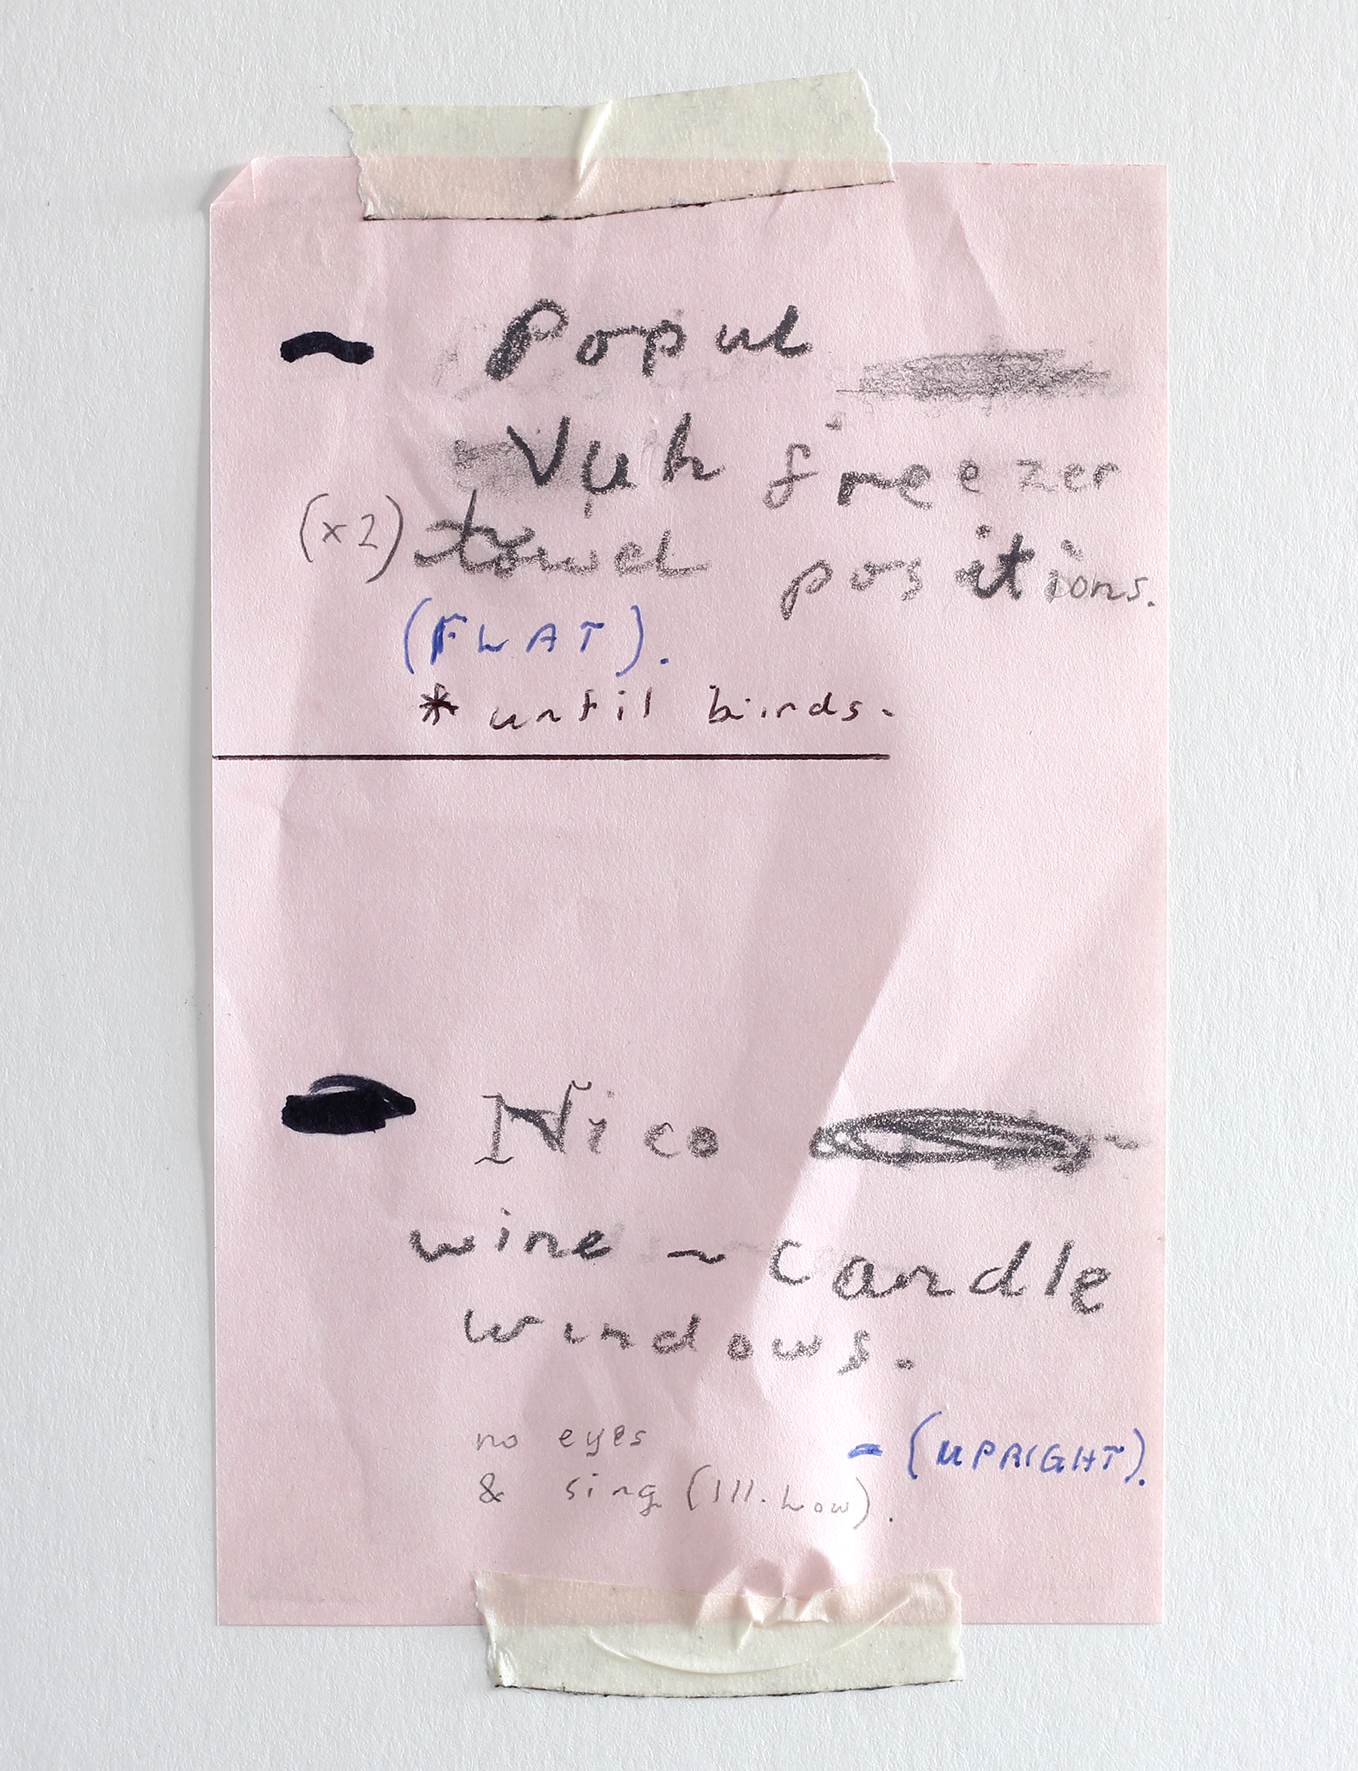 ~ Popul
Vuh freezer
(x2) towel positions.
(FLAT).
* until birds.
Nico
wine ~ Candle
windows.
no eyes
- (UPRIGHT).
& sing (Ill. Low).